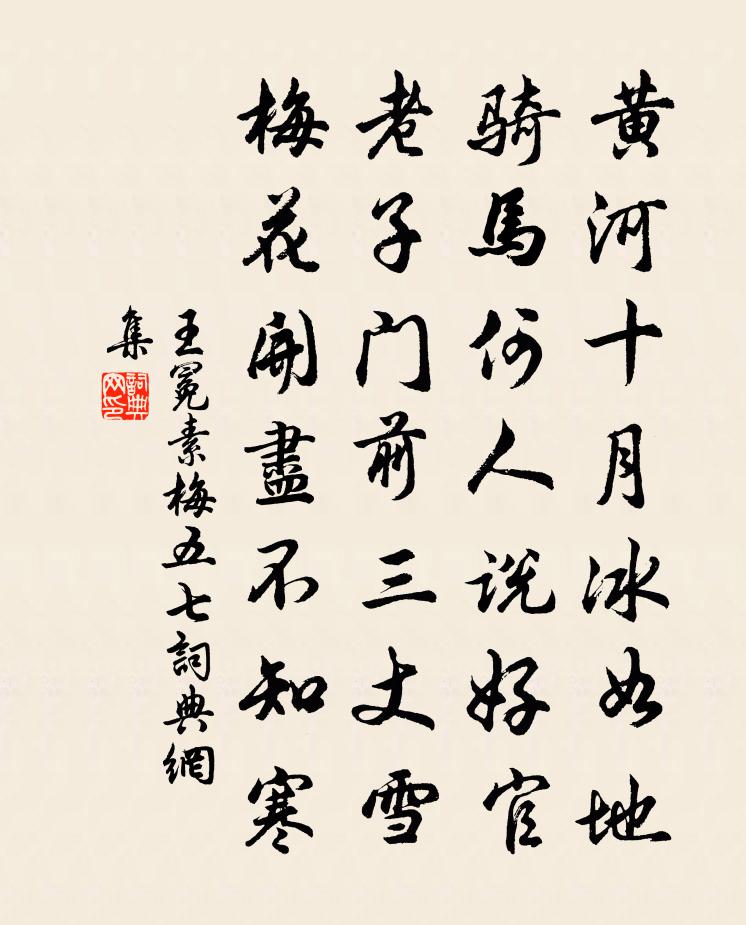 黄河十月冰如地
騎馬何人説好官
老子门前三丈雪
梅花開盡不知寒
王冕素梅五七詞典網
集
詞典
网印